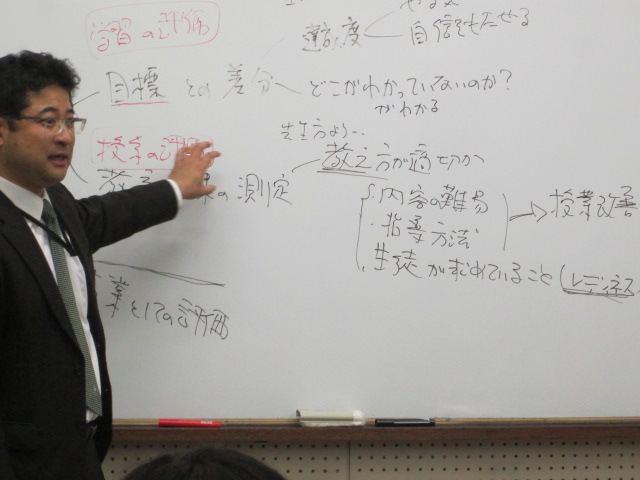 やる気
学習の評価
達成度 自信をもたせる
目標 との 差分へ どこがわかっていないのか?
がわかる
先生方より…
授業の評価
教え方が適切か
教え 果の 測定
・内容の難易
・指導方法
授業改善
生徒が求めていること(レディネス
業としての評価